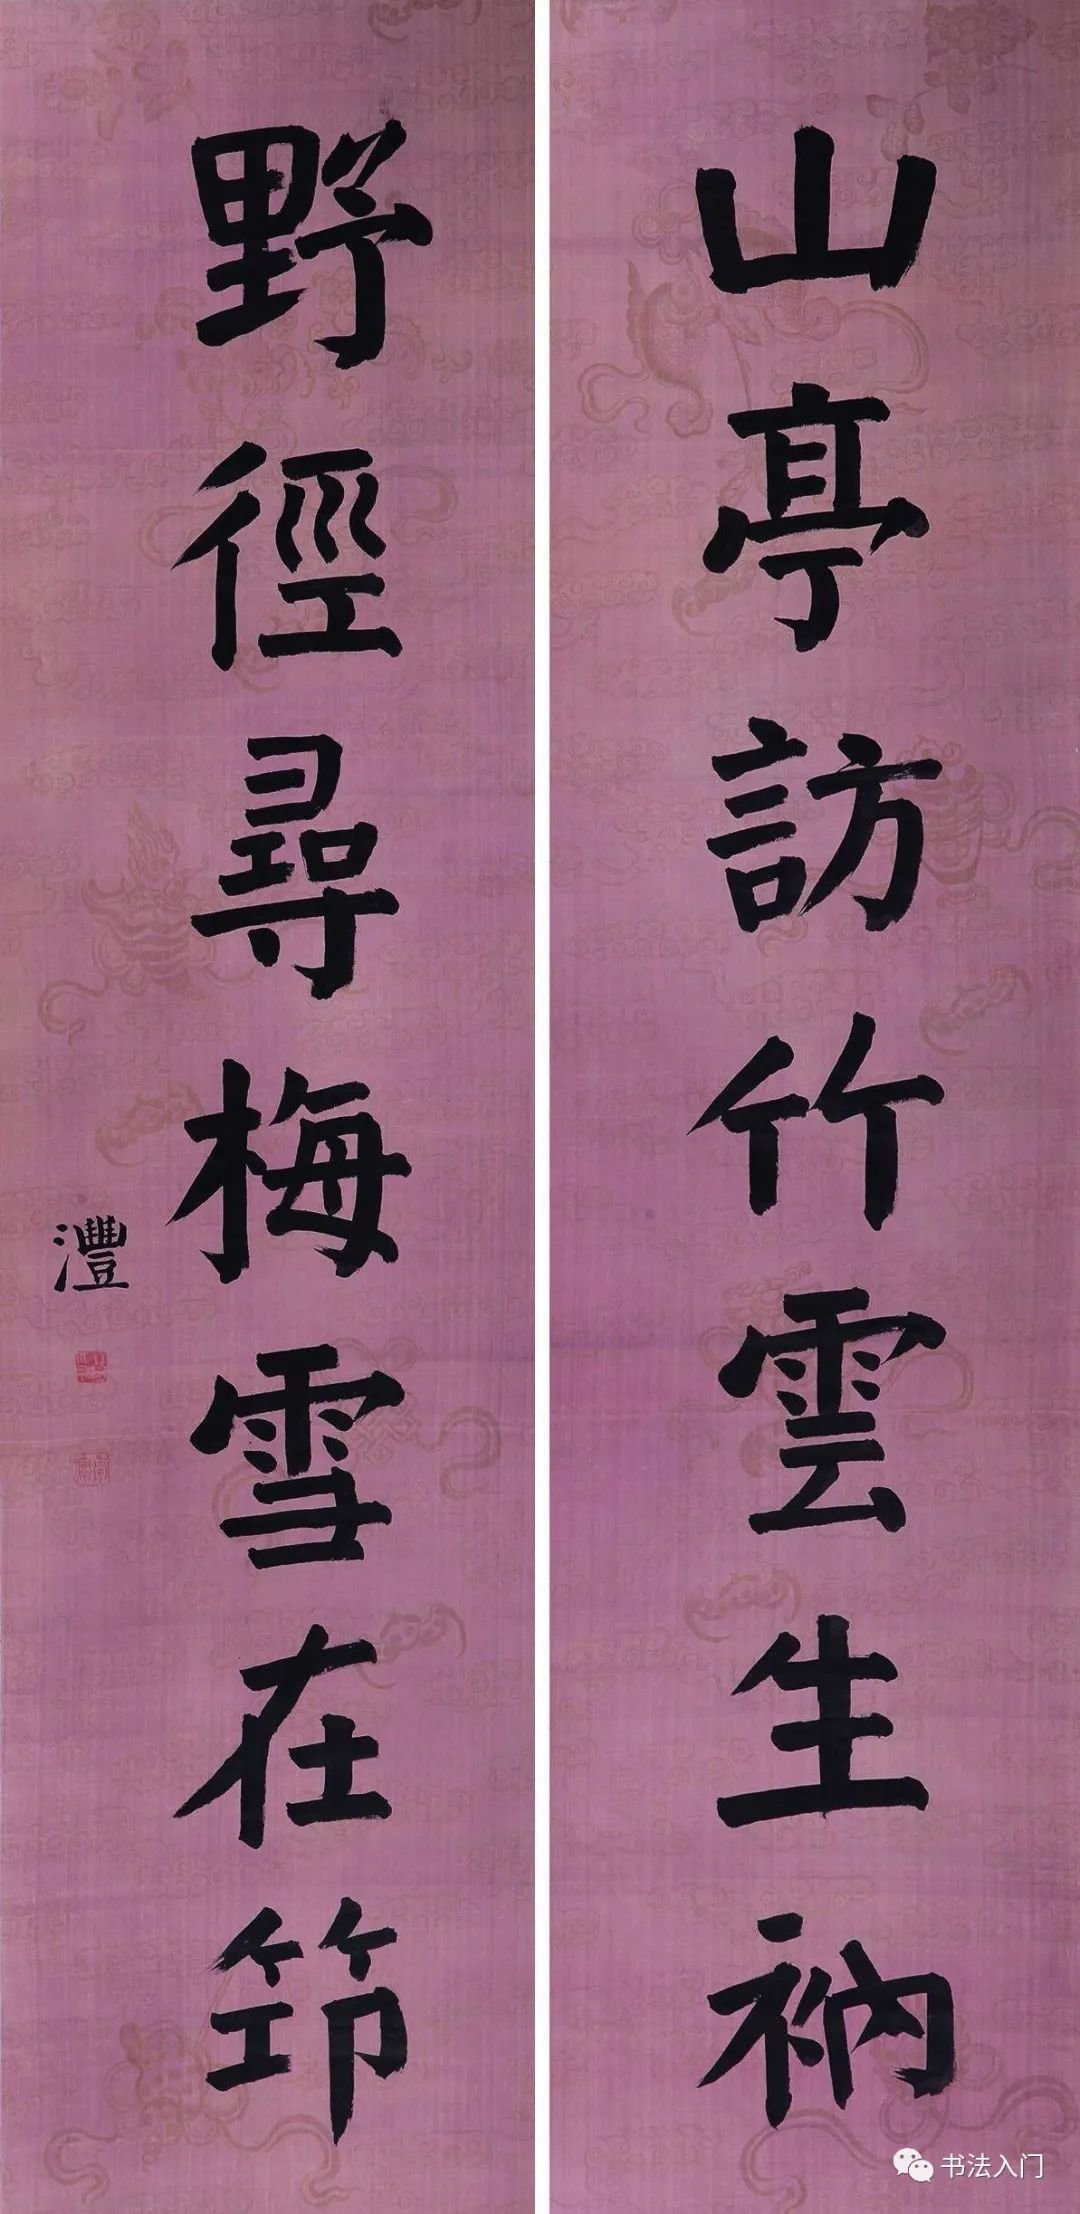 山亭訪竹雲生衲
野徑尋梅雪在筇
灃
书法入门